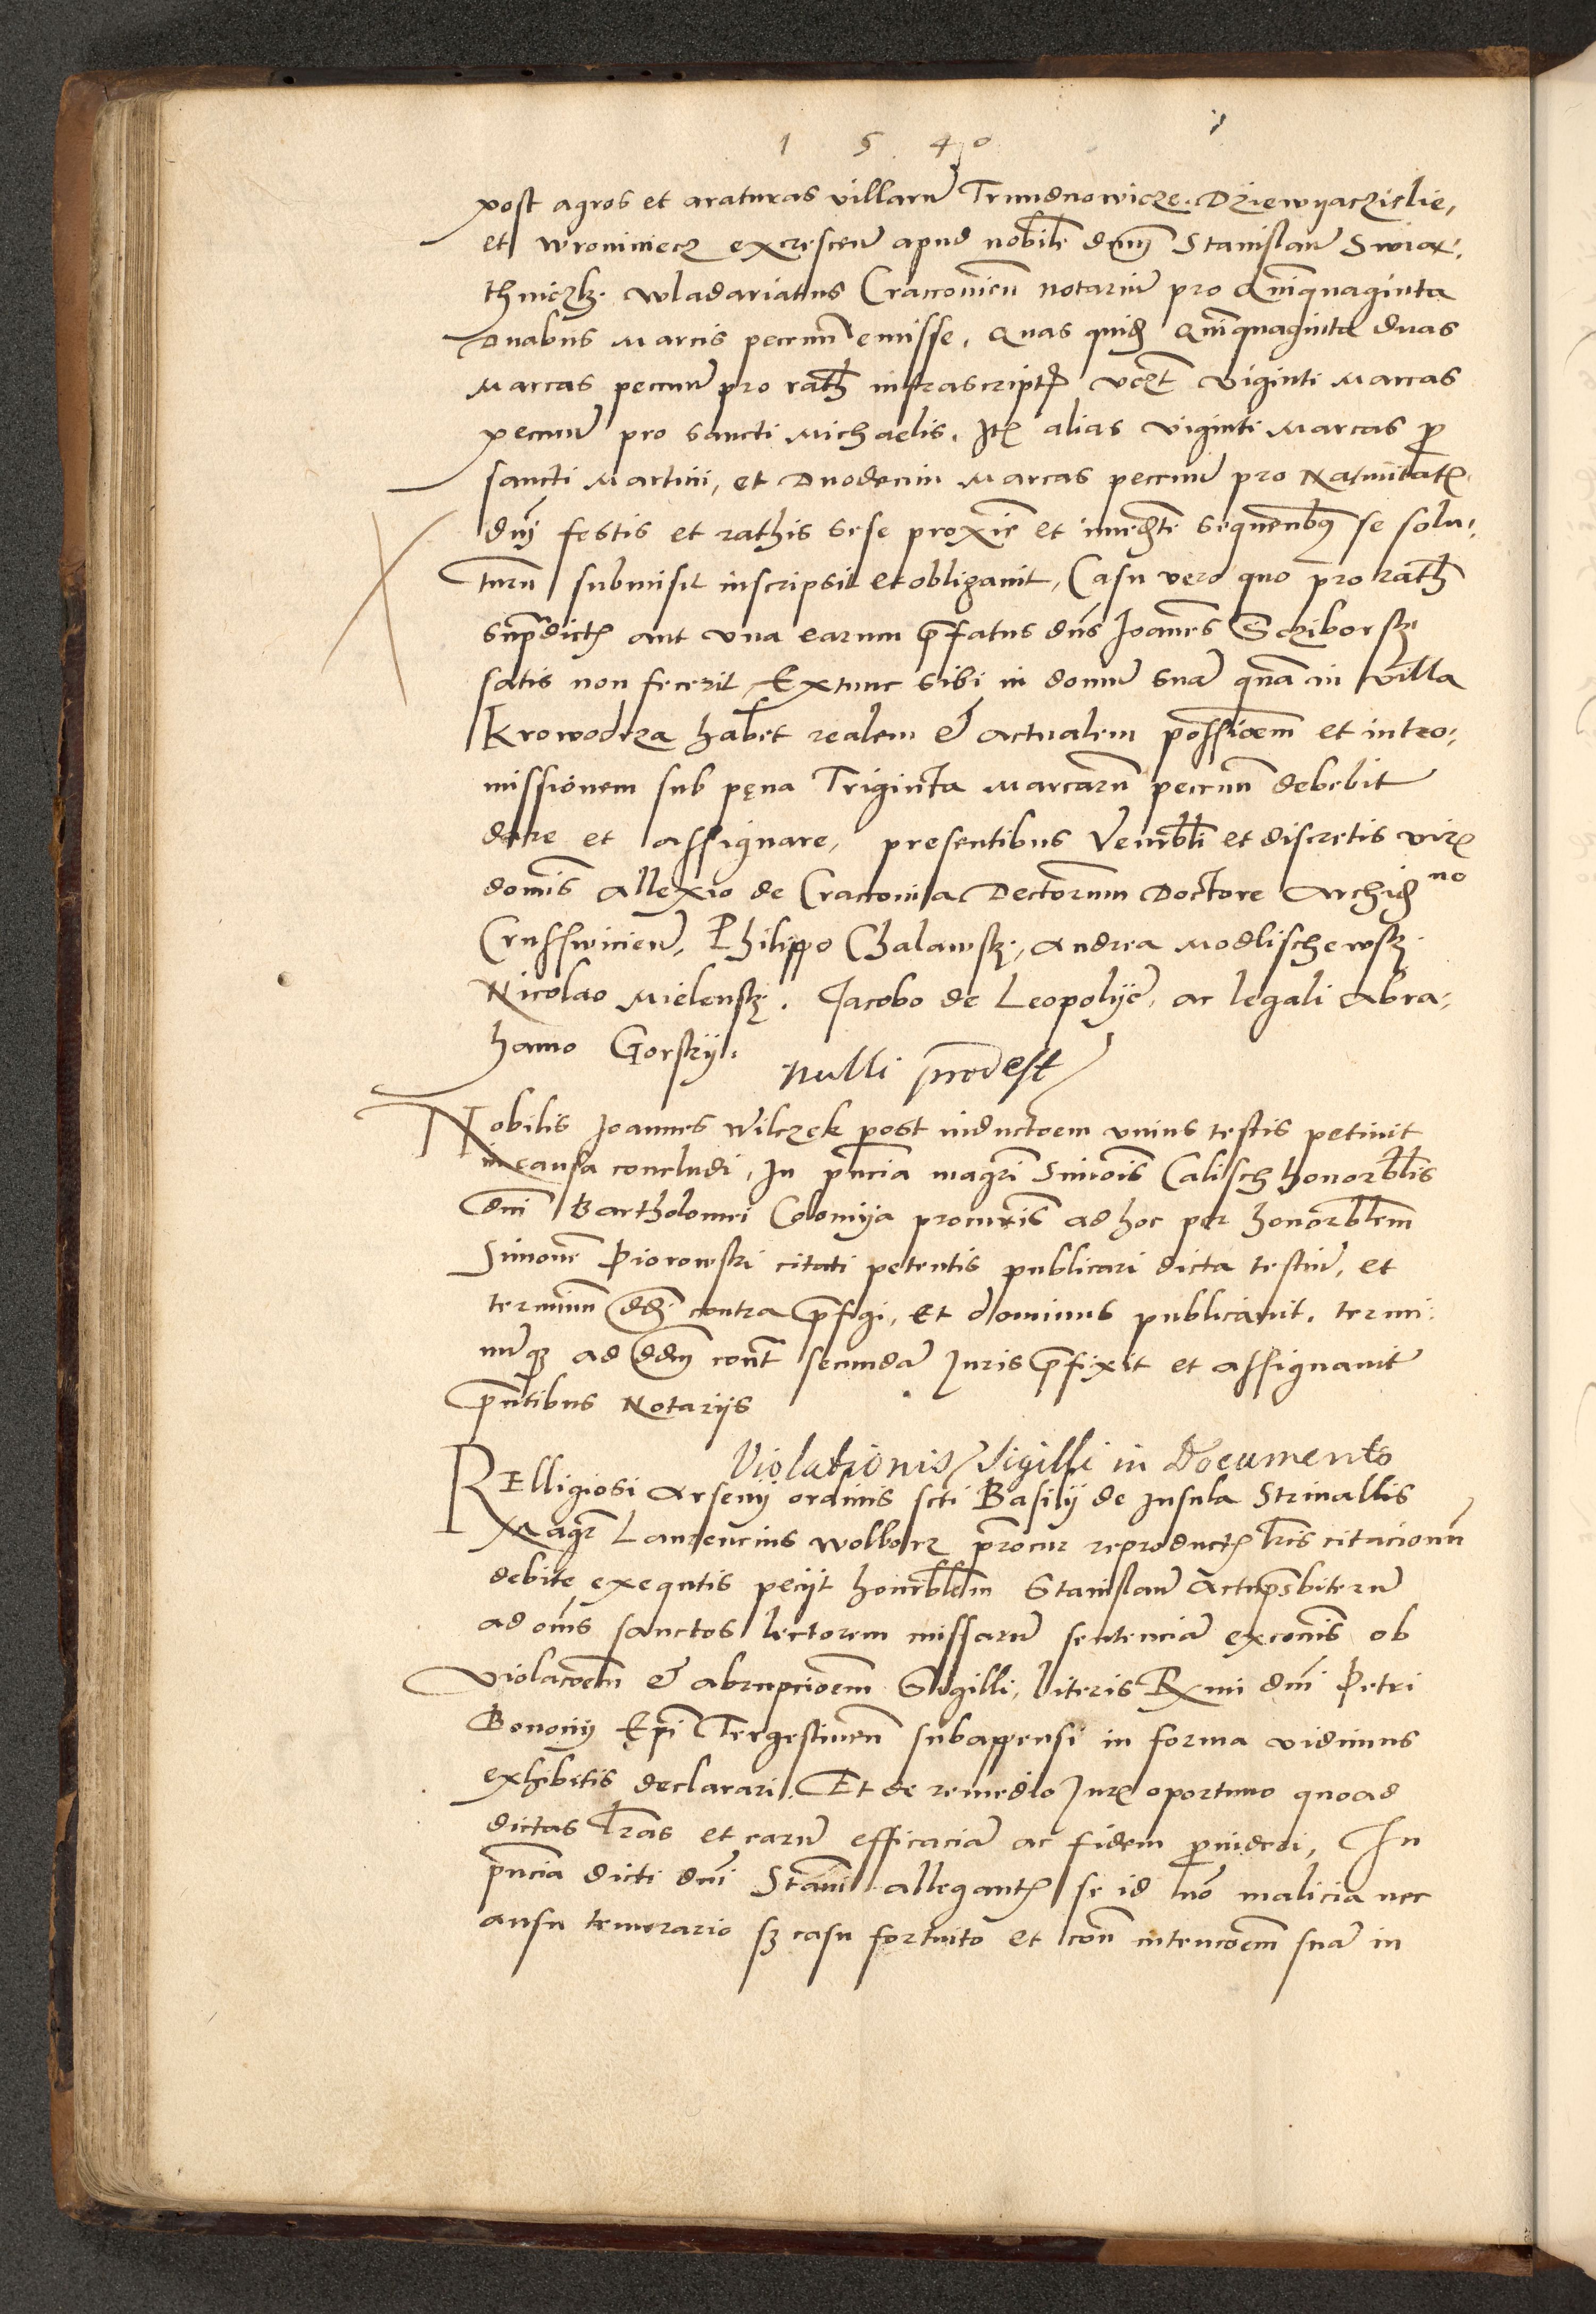 1 5 40
post agros et araturas villarū Trundnowicze. Dziewyaczielie,
et wroniniecz excrescen̄ apud nobilē dnm̄ Stanislaū Swiat:
thniczk. wladariatus Cracovien̄ notariū pro Quinquaginta
Duabus Marcis pecun̄ emisse. Quas quid̄ Quinquaginta duas
Marcas pecun̄ pro rath infrascript vczt viginti Marcas
pecun̄ pro sancti Michaelis. Itē alias viginti Marcas p̄
sancti Martini, et Duodecim Marcas pecun̄ pro Natiuitatē
dnj̄ festis et rathis sese proxiē et imedte sequentibꝫ se solu:
turū submisit inscripsit et obligauit, Casu vero quo pro rath
supradict aut vna earum p̄fatus dn̄s Joann̄es Sczibor sky
satis non fecerit, Extunc sibi in domū suā quā in villa
Krowodrza habet realem & actualem possioēm et intro:
missionem sub pęna Triginta Marcarū pecun̄ debebit
dare et assignare, presentibus Venerbli et discretis viris
domīs Allexio de Cracovia Decretorum Doctore Archid no
Crusswicien̄, Philippo Chalawsk., Andrea Modlischewsk.
Nicolao Mielensk. Jacobo de Leopolyē. ac legali Abra:
hamo Gorskij.
Nulli prodest
Nobilis Joannes Wilczek post inductoēm vnius testis petiuit
in causa concludi, In pn̄cia magri Simōis Calisch honorblis
dni Bartholomei Colomya procurīs ad hoc per honorblem
Simonē Piorowski citati petentis publicari dicta testiū, et
terminū dd̄m contra p̄figi, et dominus publicauit. termi:
nūqꝫ ad dd̄m cont̄ secundā Juris p̄fixit et assignauit
pn̄tibus Notarijs
Violationis Sigilli in Documento
RElligiosi Arsenij ordinis scti Basilij de Insula Strivallis
Magr̄ Laurencius wolborz procur reproductis lris citacionū
debite exequtis peciit honorblem Stanislaū Actup̄sbiterū
ad om̄s sanctos lectorem missarū sentenciā excom̄is ob
violacoēm & abrupcioēm Sigilli, literis Rxmi dnī Petri
Bonomij Epī Tergestinen̄ subappensi in forma vidimus
exhibitis declarari. Et de remedio Juris oportuno quoad
dictas lr̄as et earū efficaciā ac fidem p̄uideri, In
pn̄cia dicti dnī Stanī allegantis se id nō malicia nec
ausu temerario sꝫ casu fortuito et con̄ intencoēm suā in